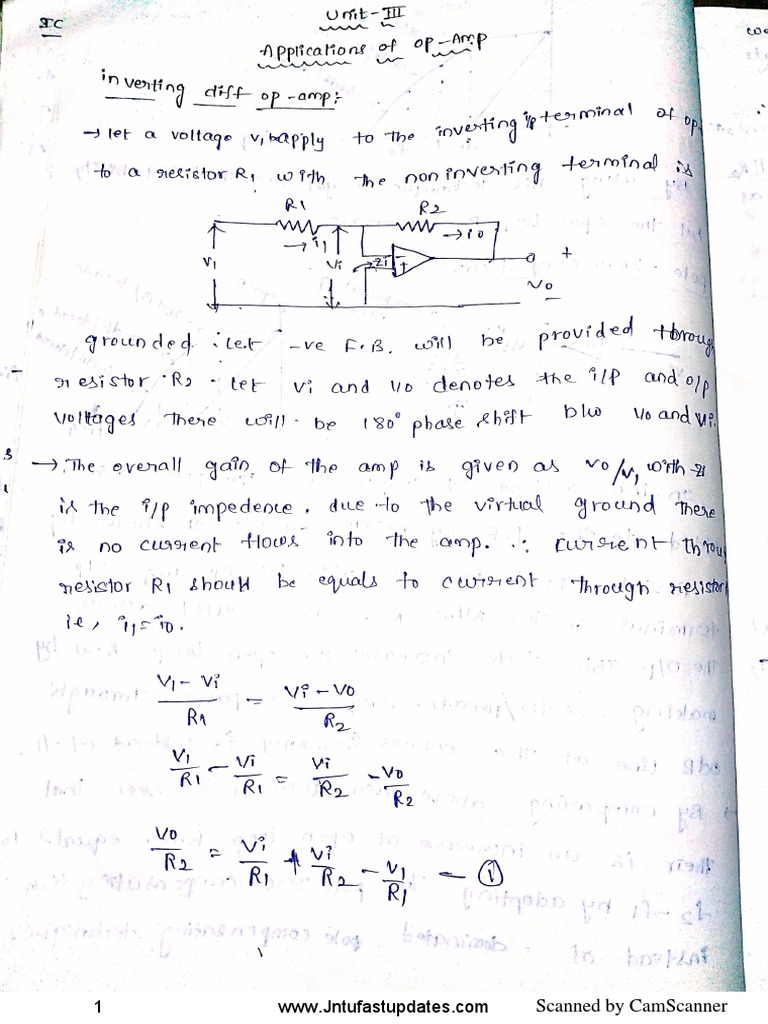 Unit-III
Applications of op-Amp
inverting diff op-amp:
→ let a voltage v1 apply to the inverting i/p terminal of op
to a resistor R1 with the noninverting terminal is
R1 R2
→ i1 → i0
v1 vi zi - + +
V0
grounded. let -ve F.B. will be provided through
resistor R2. let vi and v0 denotes the i/p and o/p
voltages there will be 180° phase shift b/w v0 and vi.
→ The overall gain of the amp is given as v0/v1 with zi
is the i/p impedence. due to the virtual ground there
is no current flows into the amp. ∴ current throu
resistor R1 should be equals to current through resistor
ie, i1 = i0.
V1 - Vi / R1 = Vi - V0 / R2
V1/R1 - Vi/R1 = Vi/R2 - V0/R2
V0/R2 = Vi/R1 + Vi/R2 - V1/R1 — ①
1 www.Jntufastupdates.com Scanned by CamScanner